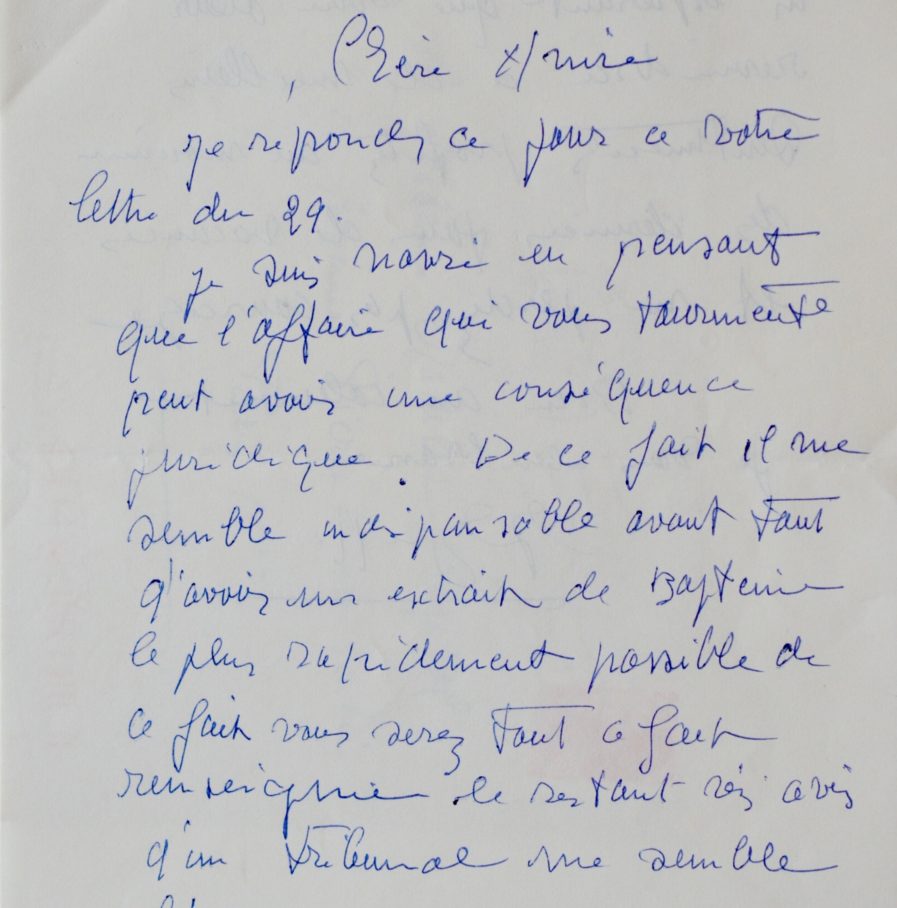 Chère
je reponds ce jour a votre
lettre du 29.
je suis navré en pensant
que l'affaire qui vous tourmente
peut avoir une conséquence
juridique. De ce fait il me
semble indispansable avant tout
d'avoir un extrait de Bapteme
le plus rapidement possible de
ce fait vous serez tout a fait
renseignée le restant avis
d'un tribunal me semble